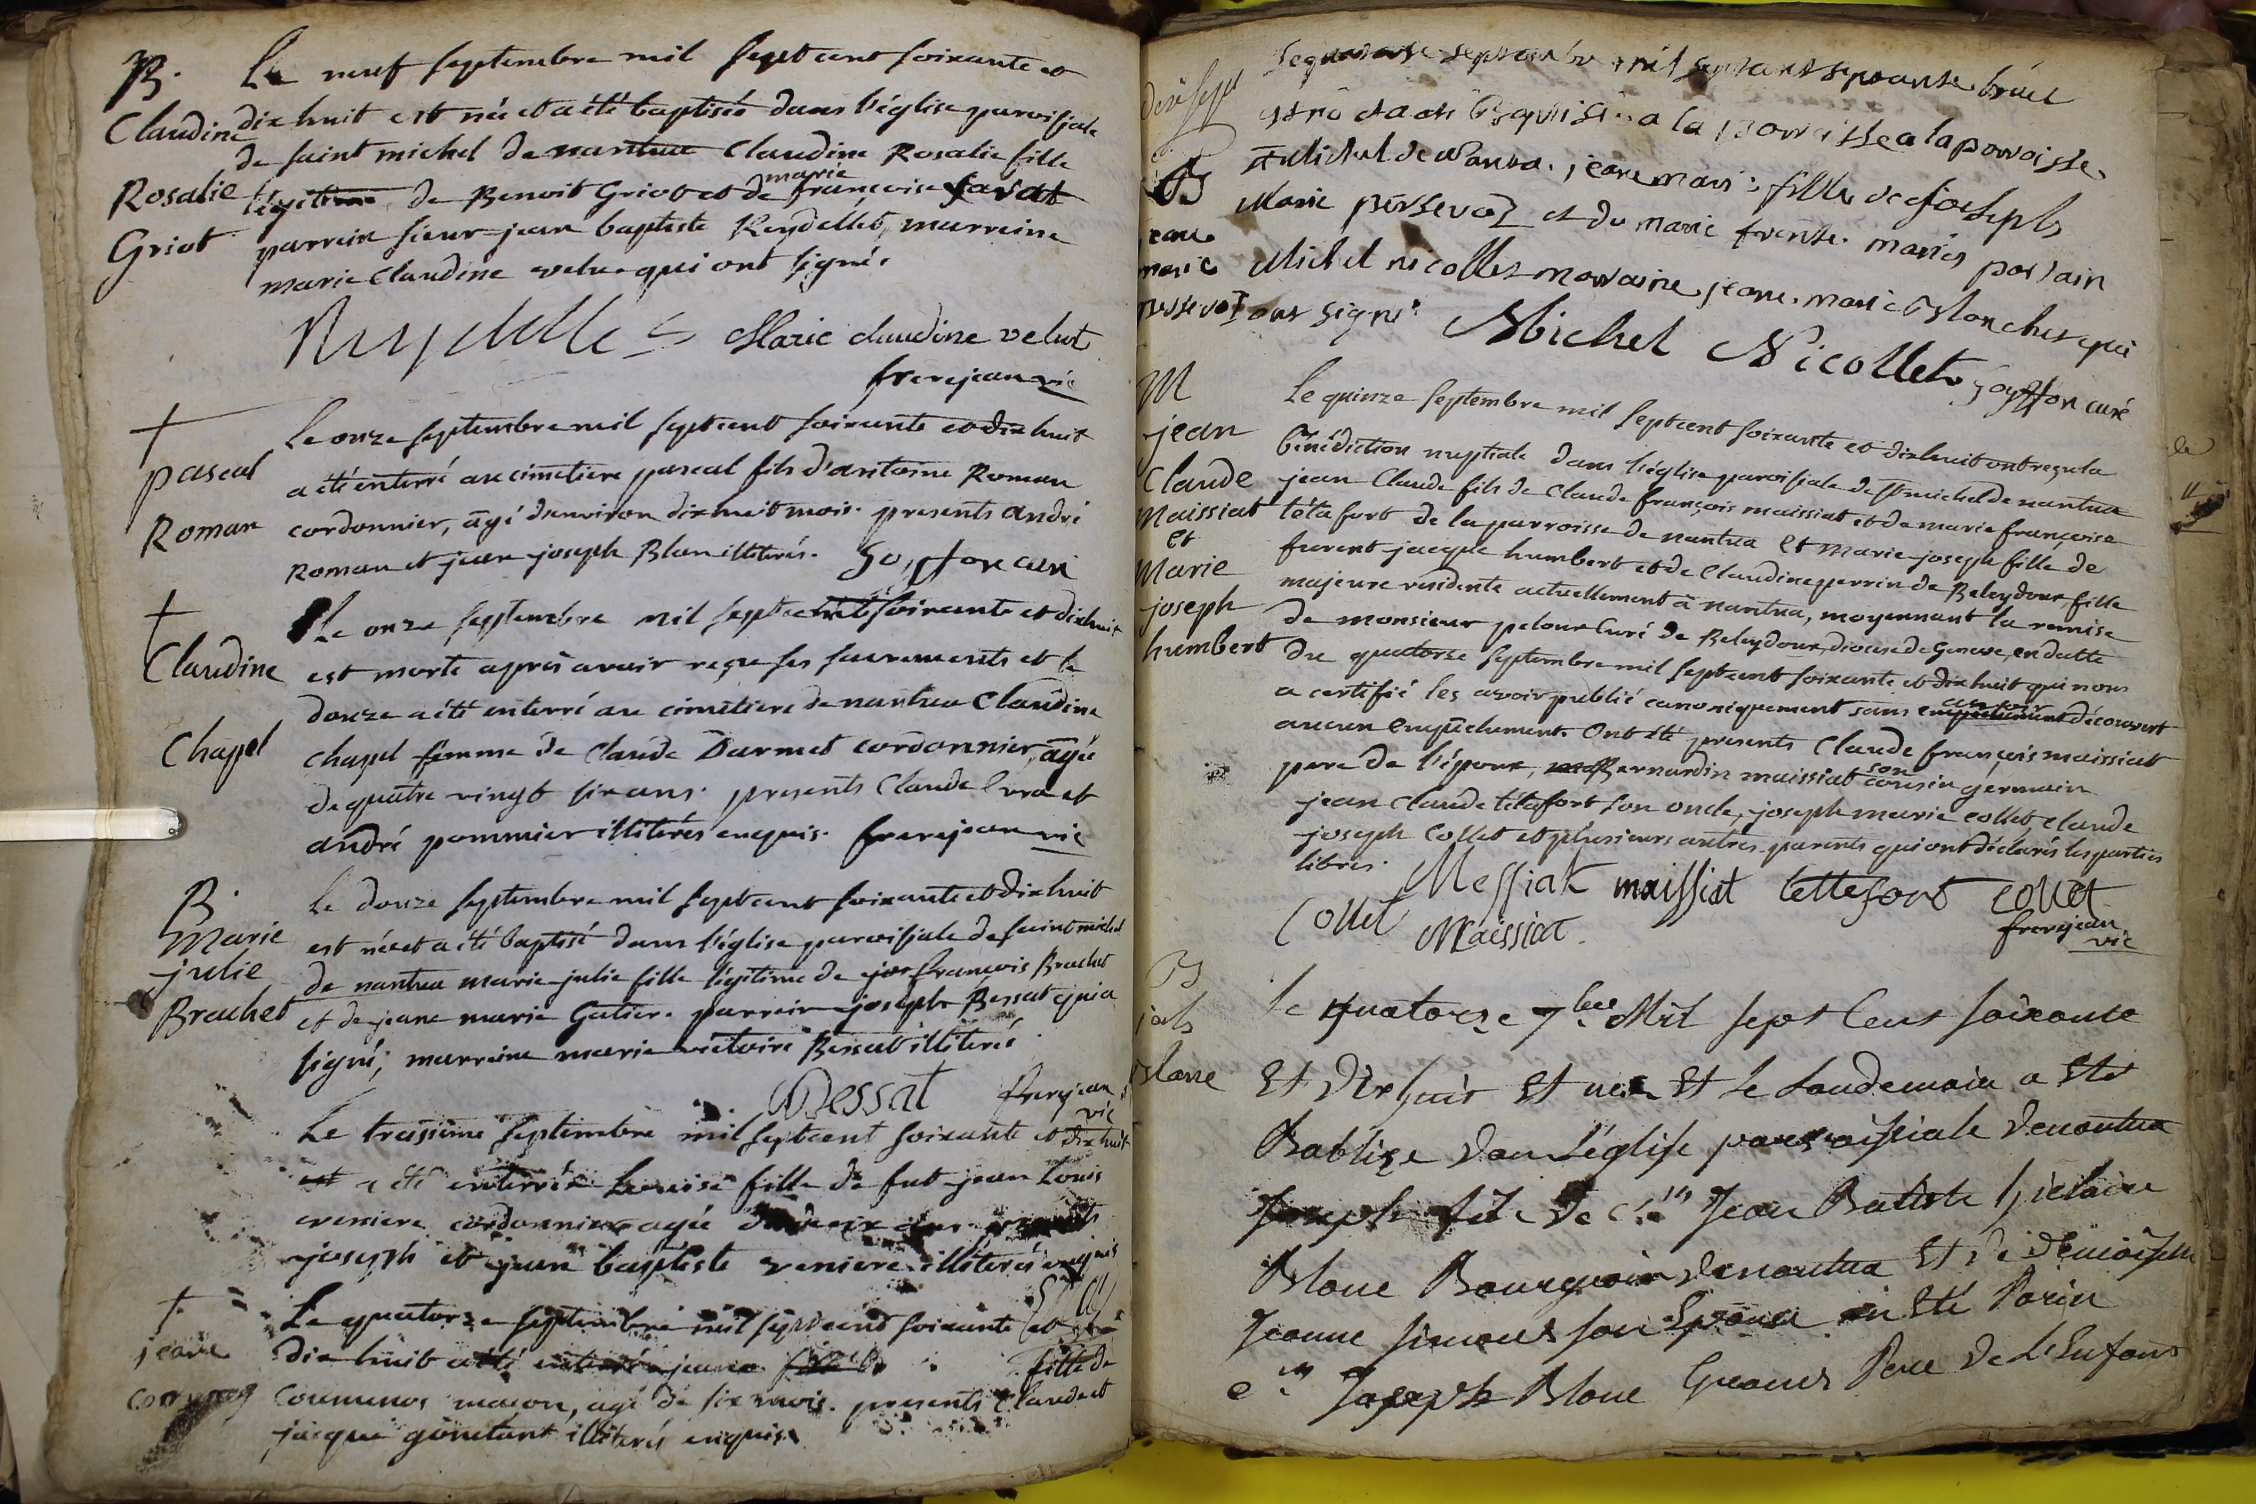 B.
Claudine
Rosalie
Griot
Le neuf septembre mil sept cent soixante et
dix huit est née et a été baptisée dans l'église paroissiale
de saint michel de nantua Claudine Rosalie fille
légitime de Benoit Griot et de marie françoise favat
parrein sieur jean baptiste Reydellet, marreine
marie Claudine velu qui ont signé.
Reydellet Marie claudine velut
frerejean vic
†
pascal
Roman
Le onze septembre mil sept cent soixante et dix huit
a été enterré au cimetiere pascal fils d'antoine Roman
cordonnier, agé d'environ dix huit mois. presents andré
Roman et jean joseph Blan illiterés. Goyffon curé
†
Claudine
Chapel
Le onze septembre mil sept cent soixante et dix huit
est morte après avoir reçu ses sacrements et le
douze a été enterré au cimetiere de nantua Claudine
chapel femme de Claude Darmet cordonnier, agée
de quatre vingt six ans. presents Claude et
andré pommier illiterés enquis. frerejean vic
B.
Marie
julie
Brachet
Le douze septembre mil sept cent soixante et dix huit
est née et a été baptisé dans l'église paroissiale de saint michel
de nantua marie julie fille légitime de françois Brachet
et de jeane marie Gatier. parrein joseph Bessat qui a
signé; marreine marie victoire Bessat illiterée
Bessat frerejean
vic
Le treisieme septembre mil sept cent soixante et dix huit
est a été enterrée Louise fille de fut jean Louis
veniere cordonnier agée
joseph et jean baptiste veniere illiterés enquis
†
jeane
Le quatorze septembre mil sept cent soixante et
dix huit a été enterrée jeane fille de
maçon, agé de six mois. presents Claude et
jacque illiterés enquis.
B
jeane
marie
persevoz
Le quatorze septembre mil sept cent septante huict
et né et a été Baptisé a la parroisse a la parroisse
st Michel de Nantua. jeane marie fille de joseph
Marie persevoz et de marie mariés parrain
Michel nicollet marraine jeane marie Blanchet qui
ont signé
Michel Nicollet goyffon curé
M
jean
Claude
Maissiat
et
Marie
joseph
humbert
Le quinze septembre mil sept cent soixante et dix huit ont reçu la
Bénédiction nuptiale dans l'église paroissiale de st michel de nantua
jean Claude fils de Claude françois maissiat et de marie françoise
tétafort de la parroisse de nantua et marie joseph fille de
furent jacque humbert et de Claudine perrin de Beleydoux fille
majeure residente actuellement à nantua, moyennant la remise
de monsieur peloux Curé de Beleydoux, diocese de Geneve, en datte
du quatorze septembre mil sept cent soixante et dix huit qui nous
a certifié les avoir publié canoniquement sans avoir découvert
aucun empêchement. Ont été presents Claude françois maissiat
pere de l'époux, Bernardin maissiat son cousin germain
jean Claude tétafort son oncle, joseph marie collet claude
joseph Collet et plusieurs autres parents qui ont déclarés les parties
libres.
Messiat maissiat tettefort collet
Collet Maissiat. frerejean
vic
B
jph
Blanc
le quatorze 7bre Mil sept Cent soixante
Et Dixhuit Et née Et le Landemain a Eté
Batisze dans l'église parroissiale de nantua
Joseph fils de Jean Batiste hilaire
Blanc Bourgeois de nantua Et de demoiselle
Jeanne Simonet son Epouse Eté Parin
Joseph Blanc Grand Pere de L'Enfant